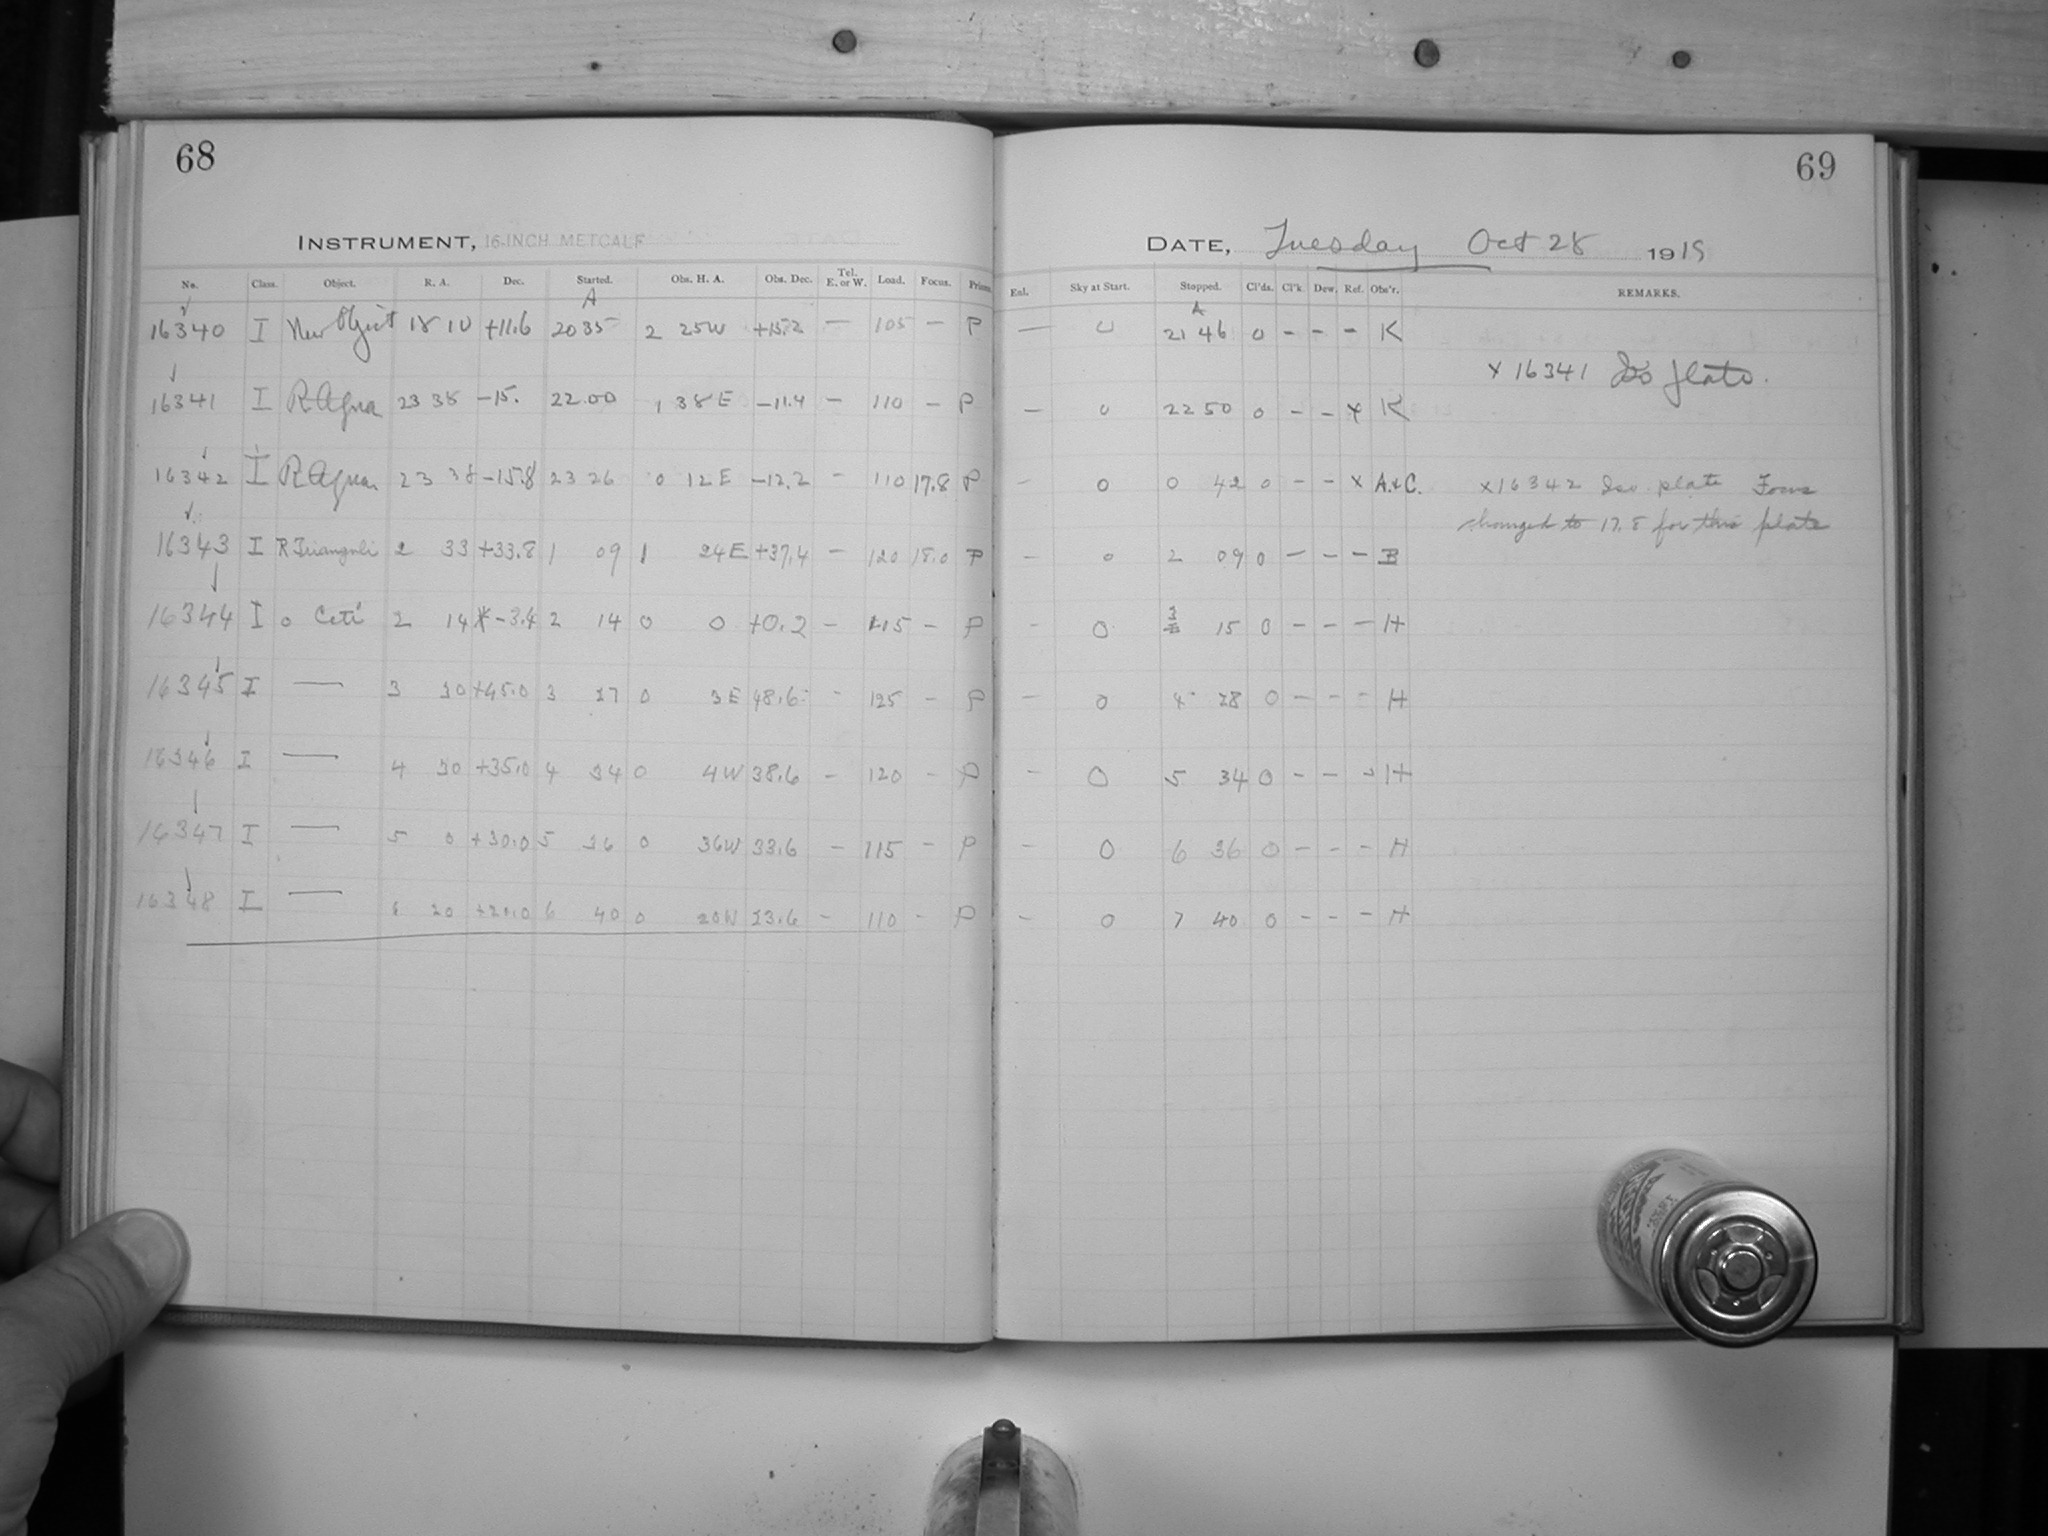 68
69
INSTRUMENT, 16-INCH METCALF
DATE, Tuesday Oct 28 1919
No. Class. Object. R. A. Dec. Started. Obs. H. A. Obs. Dec. Tel. E. or W. Load. Focus. Prism. Enl. Sky at Start. Stopped. Cl'ds. Cl'k Dew. Ref. Obs'r. REMARKS.
A A
16340 I New Object 18 10 +11.6 20 35 2 25W +15.2 — 105 — P — 0 21 46 0 - - - K
x 16341 Iso plate.
16341 I R Aqua 23 38 -15. 22.00 1 38 E -11.4 — 110 — P — 0 22 50 0 - - x K
16342 I R Aquar 23 38 -15.8 23 26 0 12 E -12.2 - 110 17.8 P - 0 0 42 0 - - x A.&C. x16342 Iso plate Focus
changed to 17.8 for this plate
16343 I R Trianguli 2 33 +33.8 1 09 1 24E +37.4 — 120 18.0 P - 0 2 09 0 - - - B
16344 I o Ceti 2 14 -3.4 2 14 0 0 +0.2 - 115 - P - 0 3 15 0 - - - H
16345 I — 3 30 +45.0 3 27 0 3E 48.6 - 125 - P - 0 4 28 0 - - - H
16346 I — 4 30 +35.0 4 34 0 4W 38.6 - 120 - P - 0 5 34 0 - - - H
16347 I — 5 0 +30.0 5 36 0 36W 33.6 - 115 - P - 0 6 36 0 - - - H
16348 I — 6 20 +20.0 6 40 0 20W 23.6 - 110 - P - 0 7 40 0 - - - H